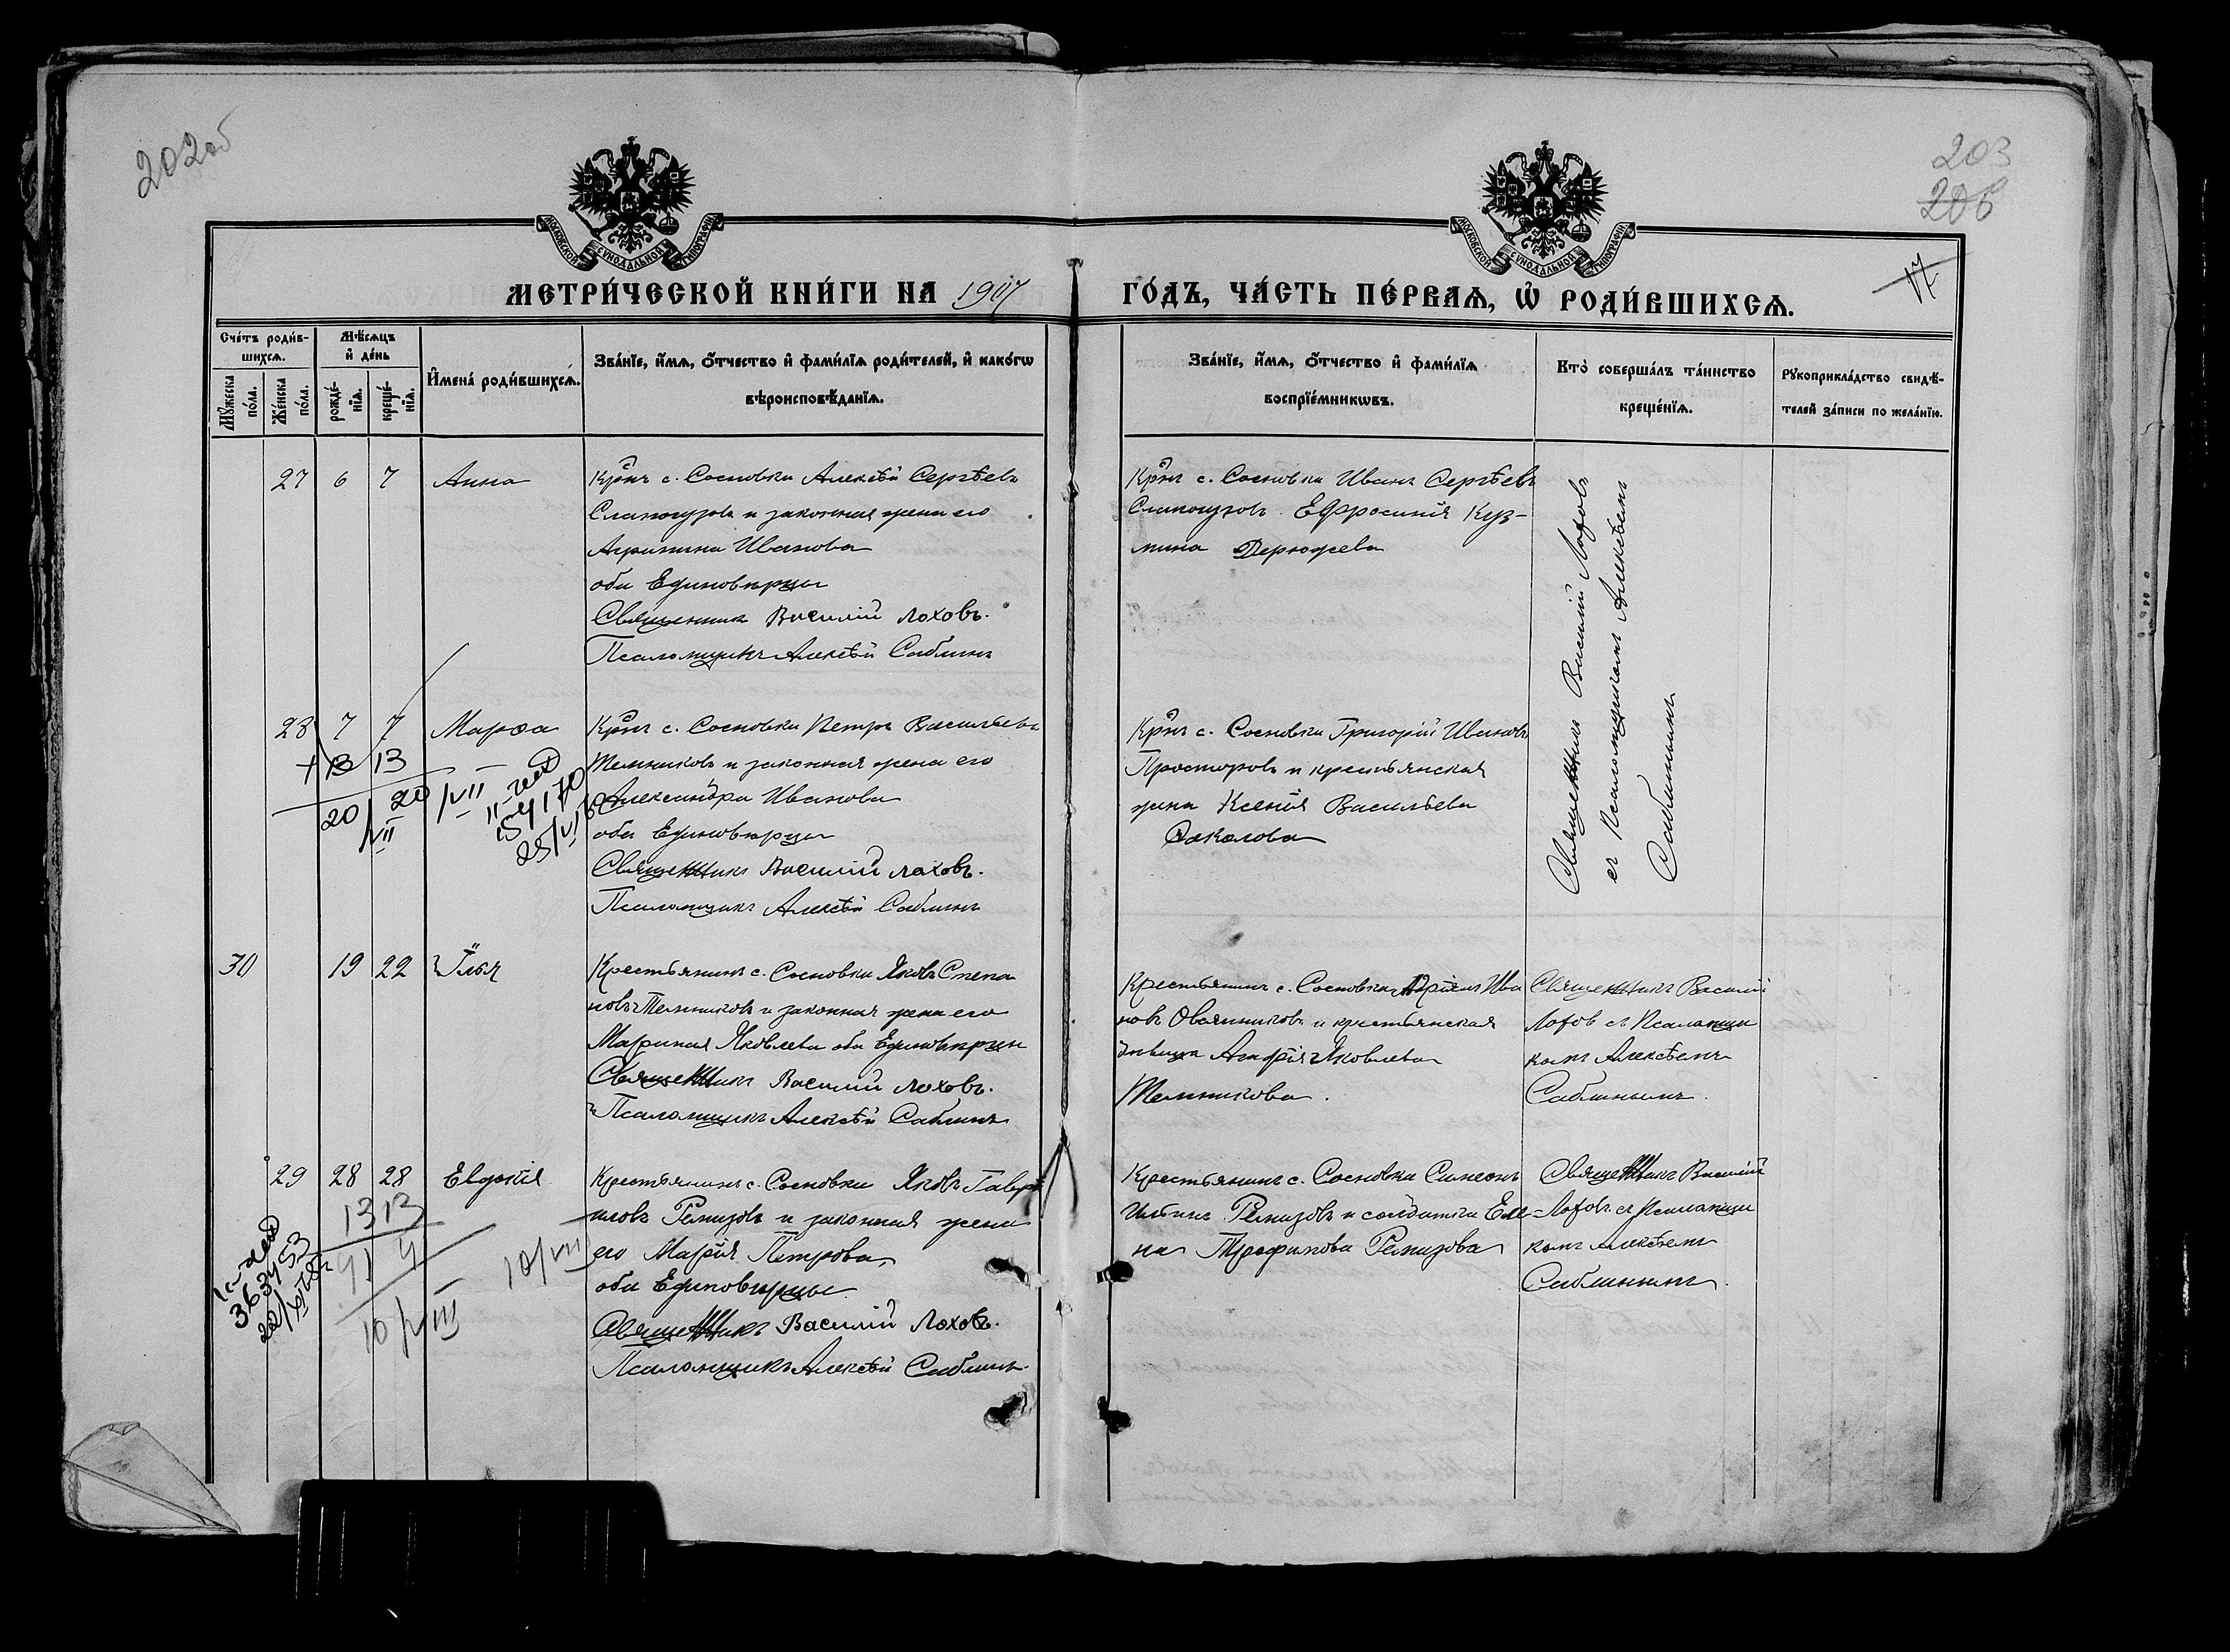 202об
203
206
17
МОСКОВСКОЙ СѴНОДАЛЬНОЙ ТИПОГРАФІИ
МОСКОВСКОЙ СѴНОДАЛЬНОЙ ТИПОГРАФІИ
МЕТРИ́ЧЕСКОЙ КНИ́ГИ НА 1907 ГО́ДЪ, ЧА́СТЬ ПЕ́РВАѦ, Ѡ҆ РОДИ́ВШИХСѦ.
Сче́тъ роди́в-
шихсѧ.
Мѣ́сѧцъ
и҆ де́нь
Мꙋ́жеска
по́ла.
Же́нска
по́ла.
рожде́-
нїѧ.
креще́-
нїѧ.
И҆мена̀ роди́вшихсѧ.
Зва́нїе, и҆́мѧ, ѻ҆́тчество и҆ фамѝлїѧ роди́телей, и҆ како́гѡ
вѣроисповѣ́данїѧ.
Зва́нїе, и҆́мѧ, ѻ҆́тчество и҆ фамѝлїѧ
воспрїе́мникѡвъ.
Кто̀ соверша́лъ та́инство
креще́нїѧ.
Рꙋкоприкла́дство свидѣ́-
телей за́писи по жела́нїю.
27 6 7 Анна
Крнъ с. Сосновки Алексѣй Сергѣевъ
Слапогузовъ и законная жена его
Агрипина Иванова
оба Единовѣрцы
Священникъ Василій Лоховъ.
Псаломщикъ Алексѣй Саблинъ
Крнъ с. Сосновки Иванъ Сергѣевъ
Слапогузовъ Ефросинія Куз-
мина Дерюжева
Священникъ Василій Лоховъ
съ Псаломщикомъ Алексѣемъ
Саблинымъ
28 7 7 Марѳа
13 13
20/VII 20/VII
25/VI
Крнъ с. Сосновки Петръ Васильевъ
Темниковъ и законная жена его
Александра Иванова
оба Единовѣрцы
Священникъ Василій Лоховъ.
Псаломщикъ Алексѣй Саблинъ
Крнъ с. Сосновки Григорій Ивановъ
Просторовъ и крестьянская
жена Ксенія Васильева
Соколова
30 19 22 Илья
Крестьянинъ с. Сосновки Яковъ Степа
новъ Темниковъ и законная жена его
Марина Яковлева оба Единовѣрцы
Священникъ Василій Лоховъ.
Псаломщикъ Алексѣй Саблинъ
Крестьянинъ с. Сосновки Ива
новъ Овсянниковъ и крестьянская
дѣвица Агафія Яковлева
Темникова.
Священникъ Василій
Лоховъ съ Псаломщи
комъ Алексѣемъ
Саблинымъ.
29 28 28 Евдокія
13 13
10/VIII
10/VII
363453
Крестьянинъ с. Сосновки Яковъ Гаври
иловъ Ремизовъ и законная жена
его Марія Петрова,
оба Единовѣрцы
Священникъ Василій Лоховъ.
Псаломщикъ Алексѣй Саблинъ.
Крестьянинъ с. Сосновки Симеонъ
Ильинъ Ремизовъ и солдатка Еле-
на Трофимова Ремизова
Священникъ Василій
Лоховъ съ Псаломщи
комъ Алексѣемъ
Саблинымъ.